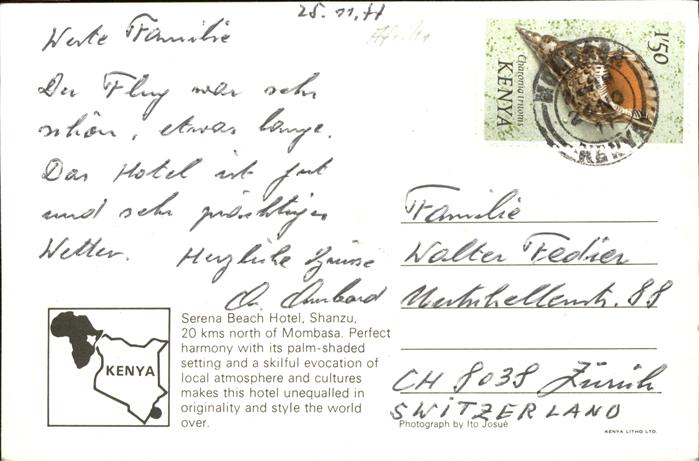 25.11.77
Werte Familie
Der Flug war sehr
schön, etwas lange.
Das Hotel ist gut
und sehr prächtiges
Wetter. Herzliche Grüsse
1'50
Charonia tritonis
KENYA
Familie
Walter Fedier
88
CH 8038 Zürich
SWITZERLAND
Serena Beach Hotel, Shanzu,
20 kms north of Mombasa. Perfect
harmony with its palm-shaded
setting and a skilful evocation of
local atmosphere and cultures
makes this hotel unequalled in
originality and style the world
over.
KENYA
Photograph by Ito Josué
KENYA LITHO LTD.